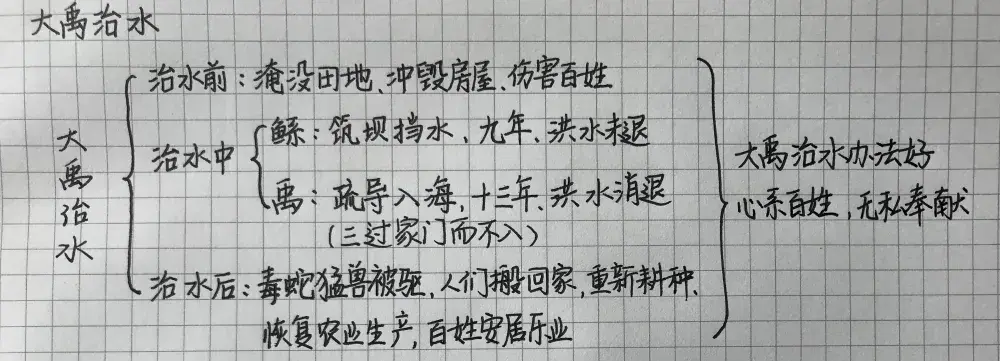 大禹治水
大禹治水
治水前：淹没田地、冲毁房屋、伤害百姓
治水中
鲧：筑坝挡水，九年、洪水未退
禹：疏导入海，十三年、洪水消退
（三过家门而不入）
治水后：毒蛇猛兽被驱，人们搬回家，重新耕种、
恢复农业生产，百姓安居乐业
大禹治水办法好
心系百姓，无私奉献